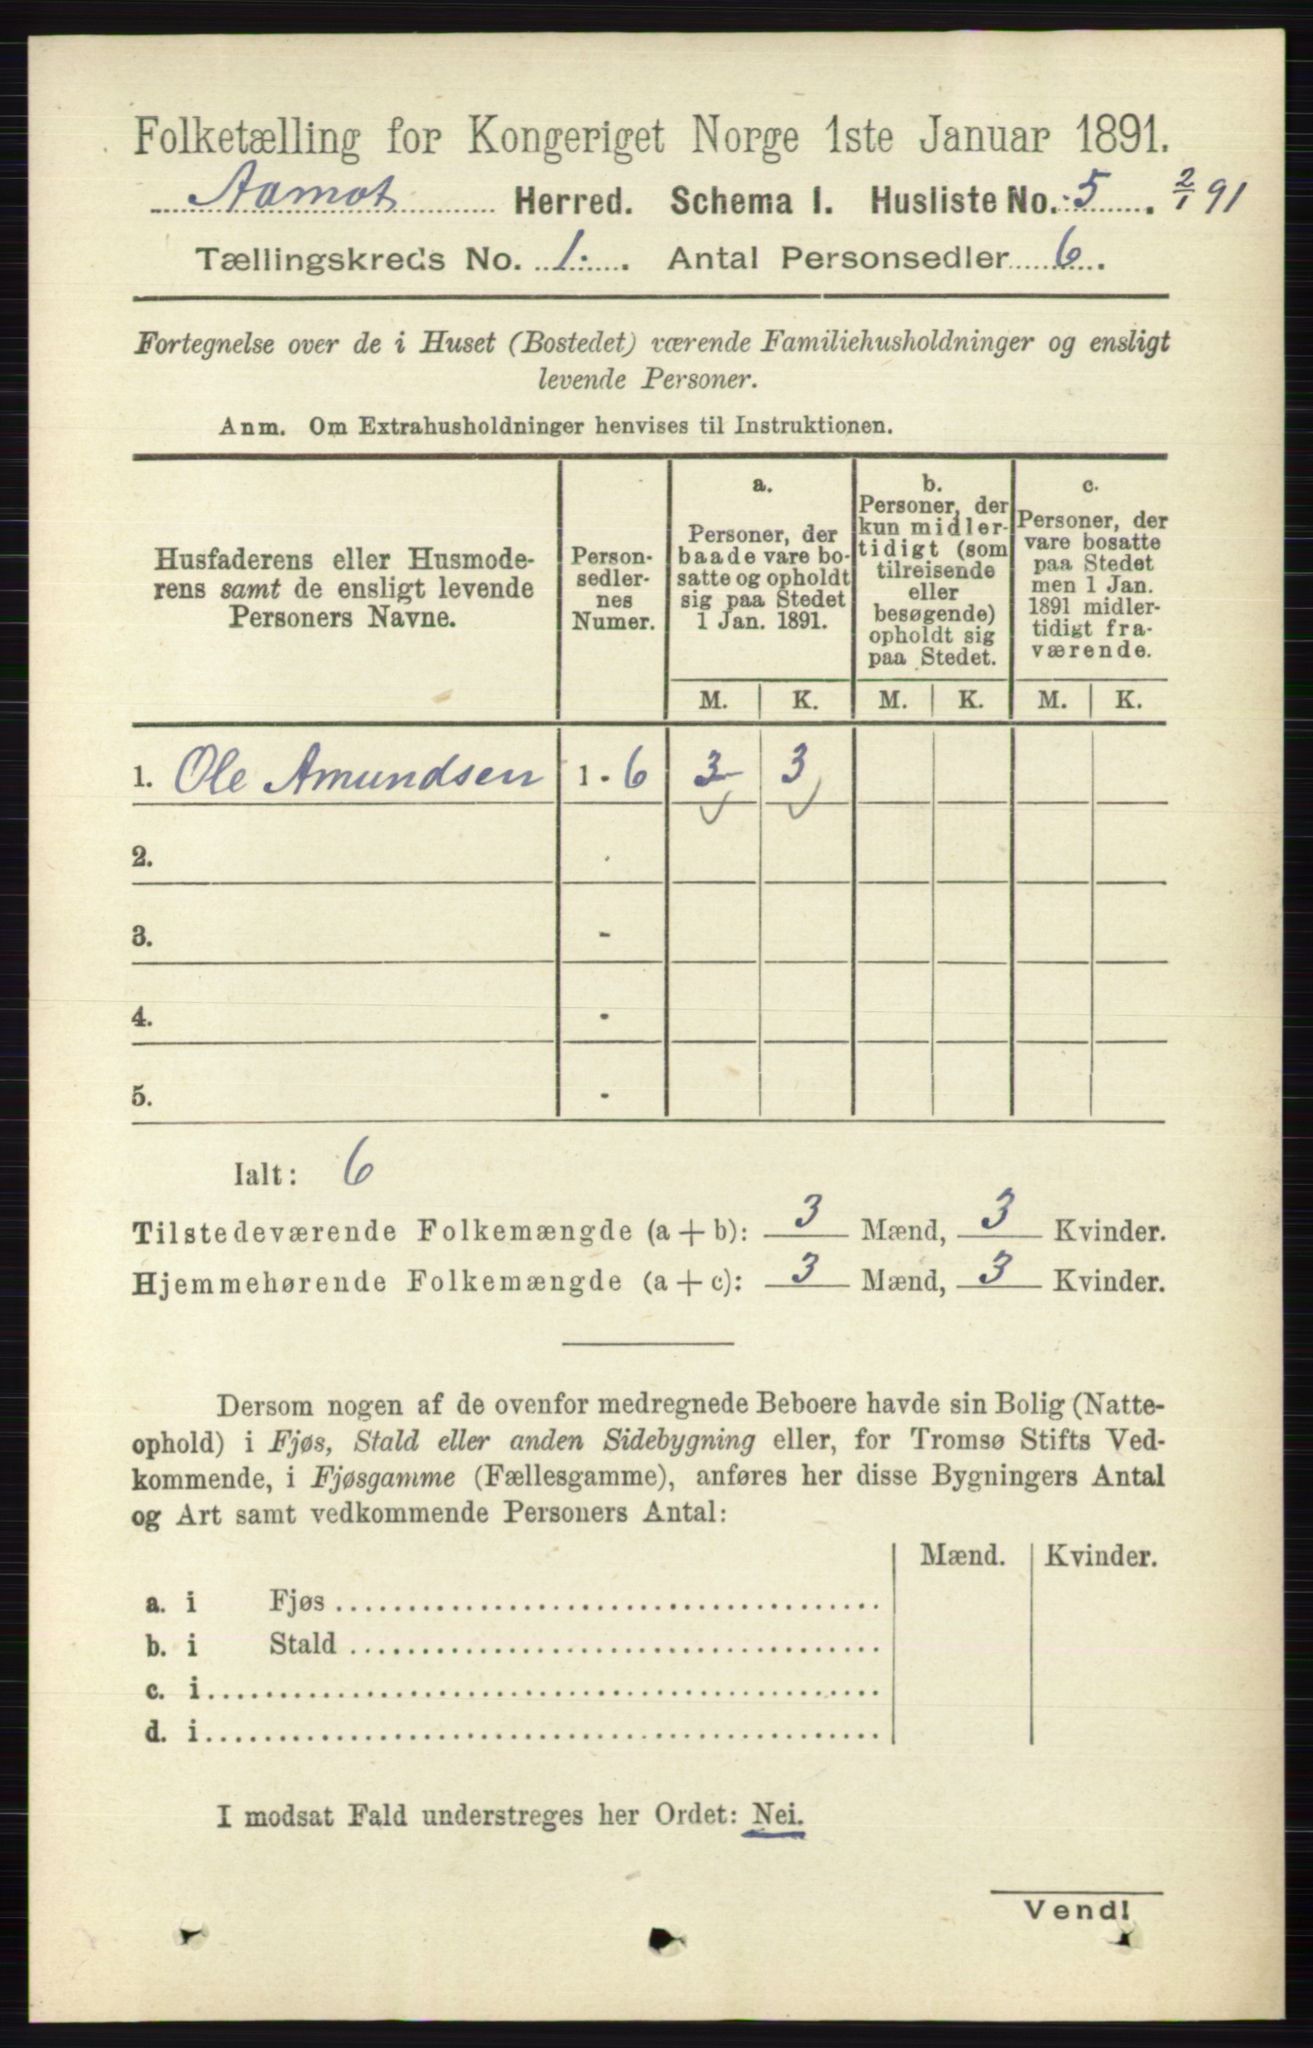 Folketælling for Kongeriget Norge 1ste Januar 1891.
Aamot Herred. Schema I. Husliste No. 5. 2/1 91
Tællingskreds No. 1. Antal Personsedler 6.
Fortegnelse over de i Huset (Bostedet) værende Familiehusholdninger og ensligt
levende Personer.
Anm. Om Extrahusholdninger henvises til Instruktionen.
Husfaderens eller Husmode-
rens samt de ensligt levende
Personers Navne.
Person-
sedler-
nes
Numer.
a.
Personer, der
baade vare bo-
satte og opholdt
sig paa Stedet
1 Jan. 1891.
b.
Personer, der
kun midler-
tidigt (som
tilreisende
eller
besøgende)
opholdt sig
paa Stedet.
c.
Personer, der
vare bosatte
paa Stedet
men 1 Jan.
1891 midler-
tidigt fra-
værende.
M. K. M. K. M. K.
1. Ole Amundsen 1 - 6 3 3
2. -
3. -
4. -
5. -
Ialt: 6
Tilstedeværende Folkemængde (a + b): 3 Mænd, 3 Kvinder.
Hjemmehørende Folkemængde (a + c): 3 Mænd, 3 Kvinder.
Dersom nogen af de ovenfor medregnede Beboere havde sin Bolig (Natte-
ophold) i Fjøs, Stald eller anden Sidebygning eller, for Tromsø Stifts Ved-
kommende, i Fjøsgamme (Fællesgamme), anføres her disse Bygningers Antal
og Art samt vedkommende Personers Antal:
Mænd. Kvinder.
a. i Fjøs
b. i Stald
c. i
d. i
I modsat Fald understreges her Ordet: Nei.
Vend!